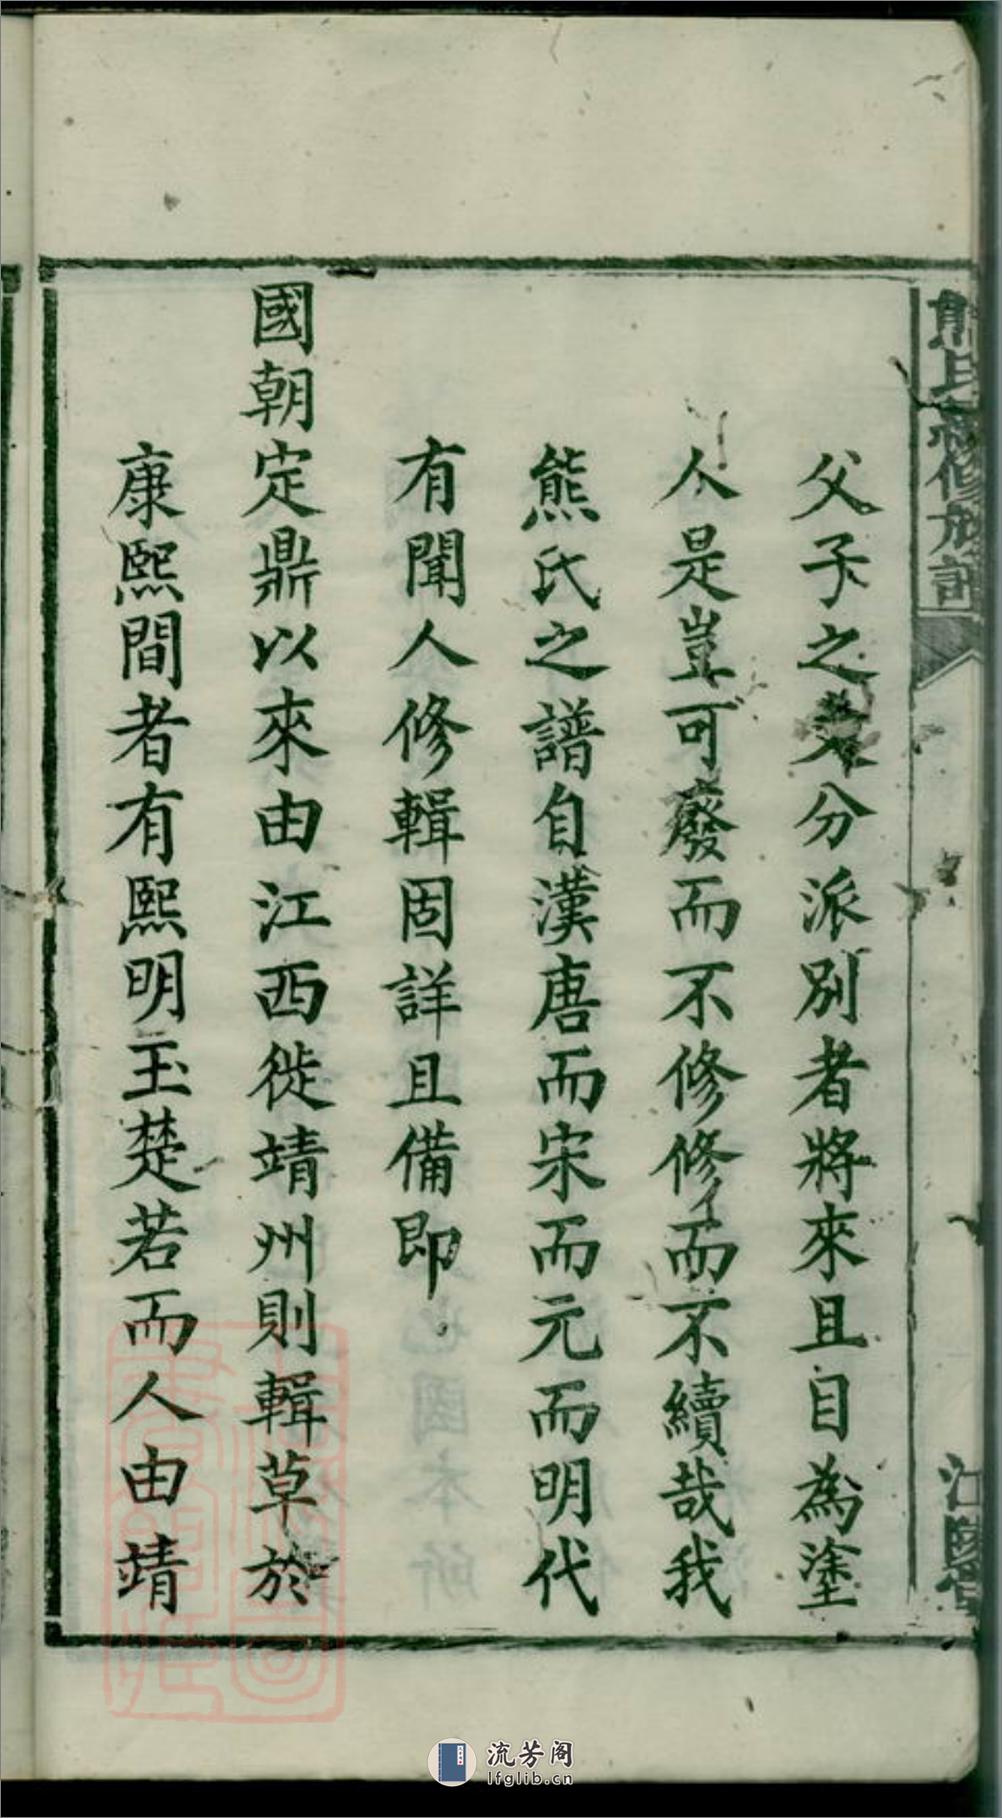 熊氏續修族譜
江陵堂
父子之久分派別者將來且自為塗
人是豈可廢而不修修而不續哉我
熊氏之譜自漢唐而宋而元而明代
有聞人修輯固詳且備即
國朝定鼎以來由江西徙靖州則輯草於
康熙間者有熙明玉楚若而人由靖
流芳阁
lfglib.cn